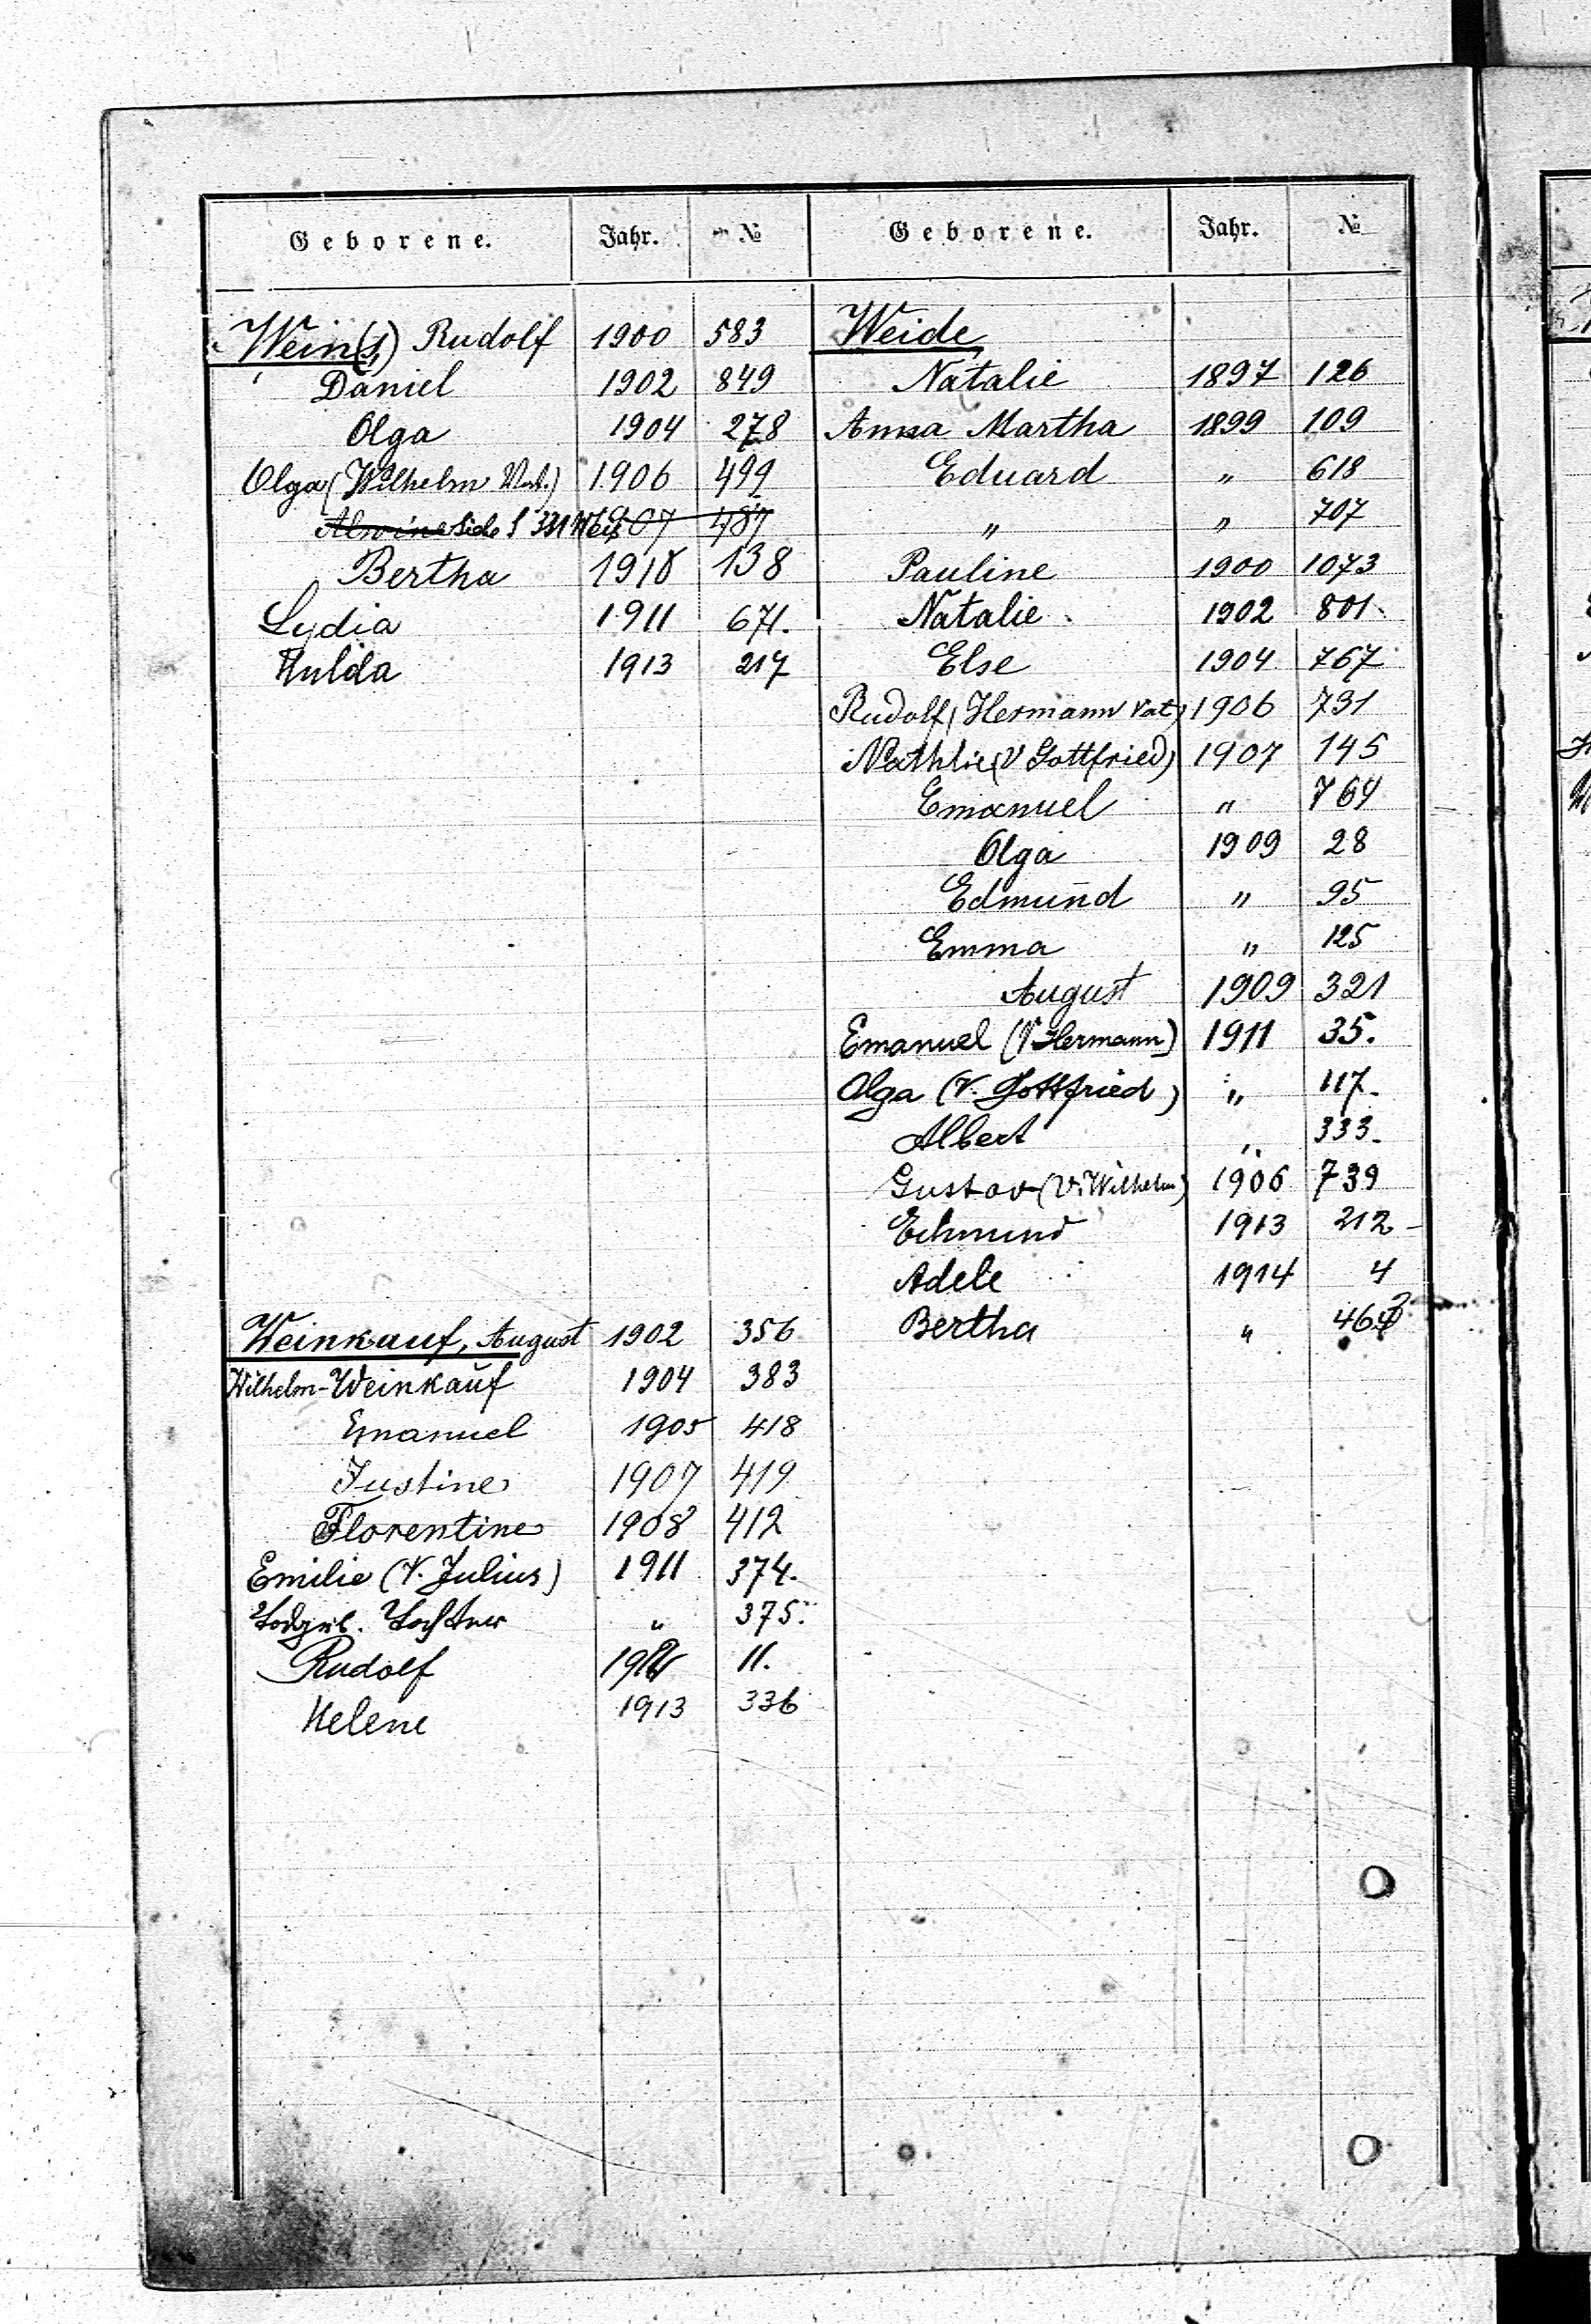 Geborene. Jahr. №
Wein(s) Rudolf 1900 583
Daniel 1902 849
Olga 1904 278
Olga (Wilhelm Vat.) 1906 499
Alwine Siehe S 331 1907 487
Bertha 1910 138
Lydia 1911 671.
Hulda 1913 217
Weinkauf, August 1902 356
Wilhelm-Weinkauf 1904 383
Emanuel 1905 418
Justine 1907 419
Florentine 1908 412
Emilie (V. Julius) 1911 374.
Todgeb. Tochter " 375.
Rudolf 11.
Helene 1913 336
Geborene. Jahr. №
Weide
Natalie 1897 126
Anna Martha 1899 109
Eduard " 618
" " 707
Pauline 1900 1073
Natalie 1902 801
Else 1904 767
Rudolf (Hermann Vat) 1906 731
Nathlie (V Gottfried) 1907 145
Emanuel " 764
Olga 1909 28
Edmund " 95
Emma " 125
August 1909 321
Emanuel (V Hermann) 1911 35.
Olga (V. Gottfried) " 117.
Albert " 333.
Gustav (V. Wilhelm) 1906 739
Edmund 1913 212
Adele 1914 4
Bertha "